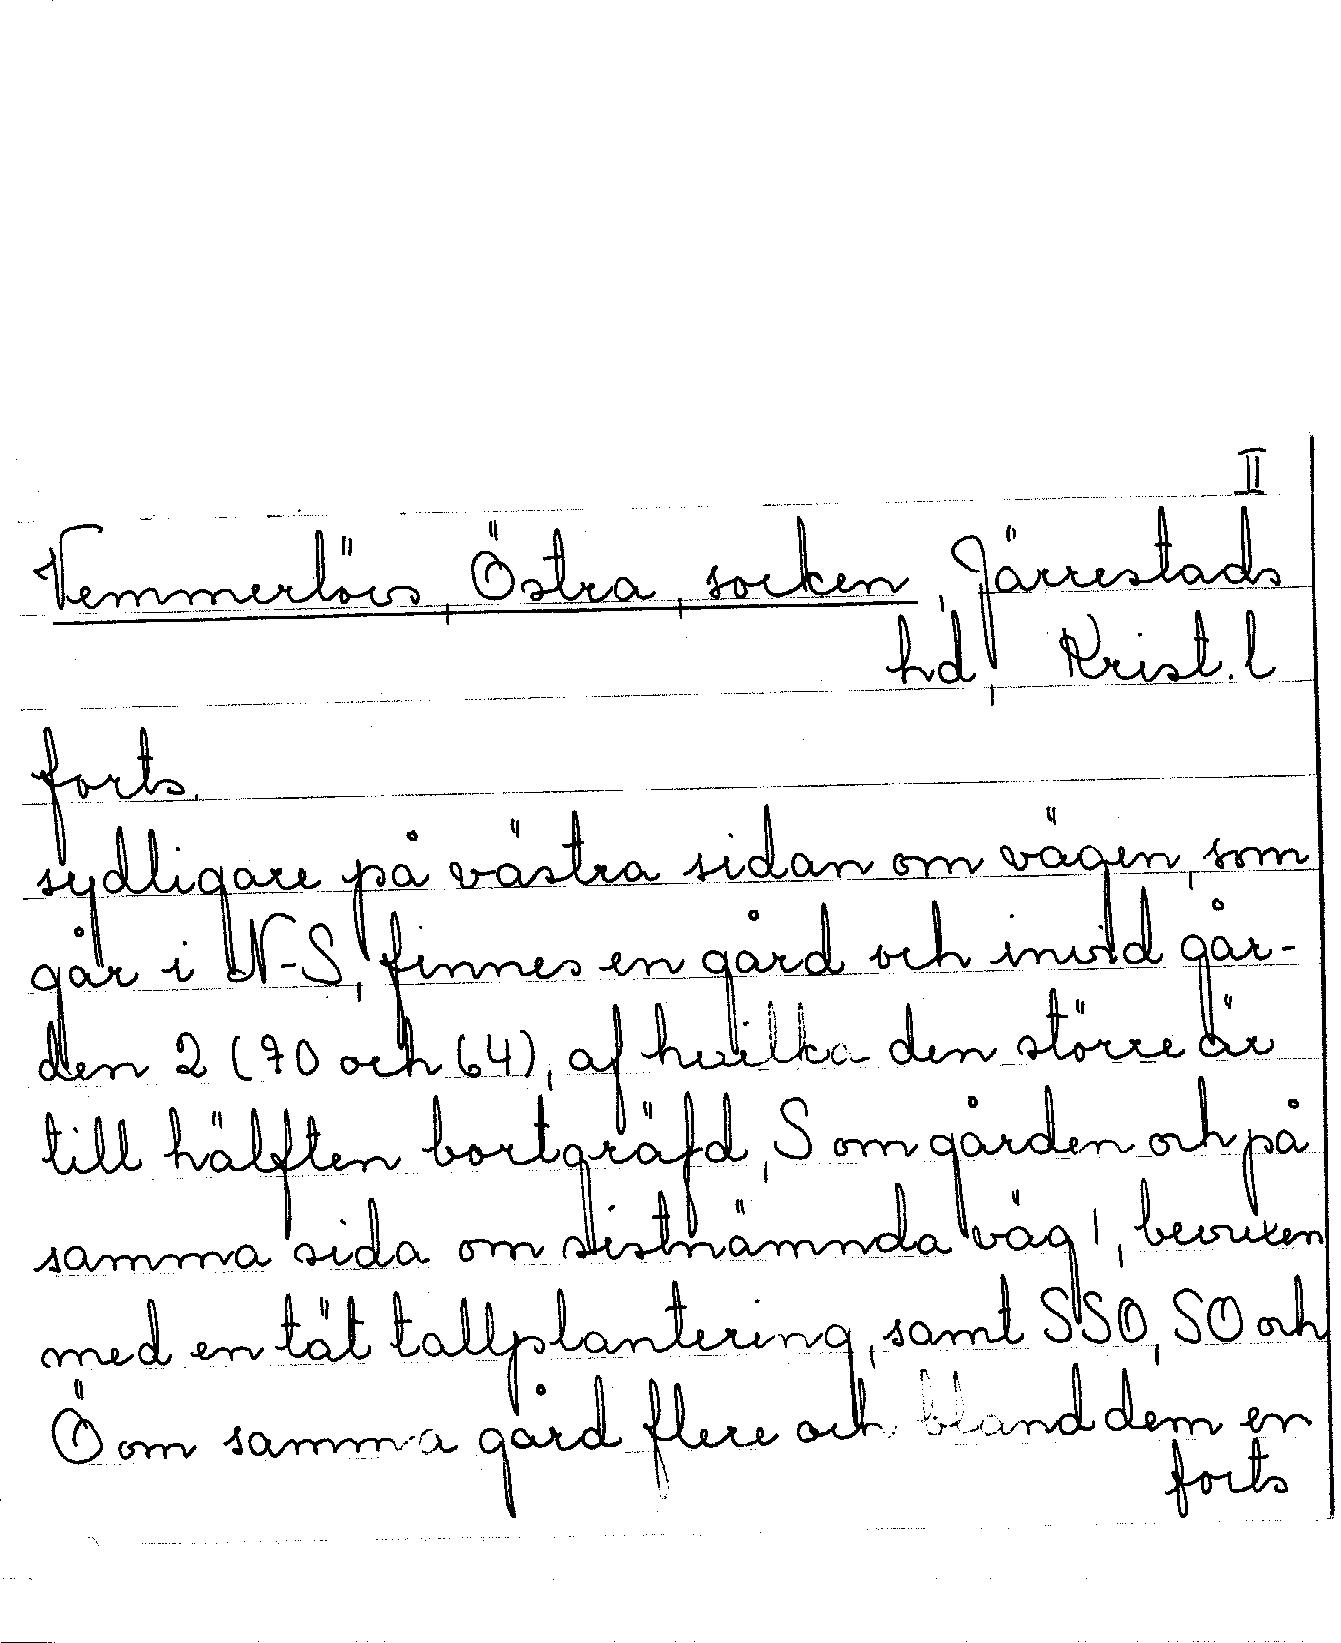 II
Vemmerlövs, Östra, socken, Järrestads
hd, Krist. l
forts.
sydligare på västra sidan om vägen, som
går i N-S, finnes en gård och invid går-
den 2 (70 och 64), af hvilka den större är
till hälften bortgräfd, S om gården och på
samma sida om sistnämnda väg 1, bevuxen
med en tät tallplantering, samt SSO, SO och
Ö om samma gård flere och bland dem en
forts